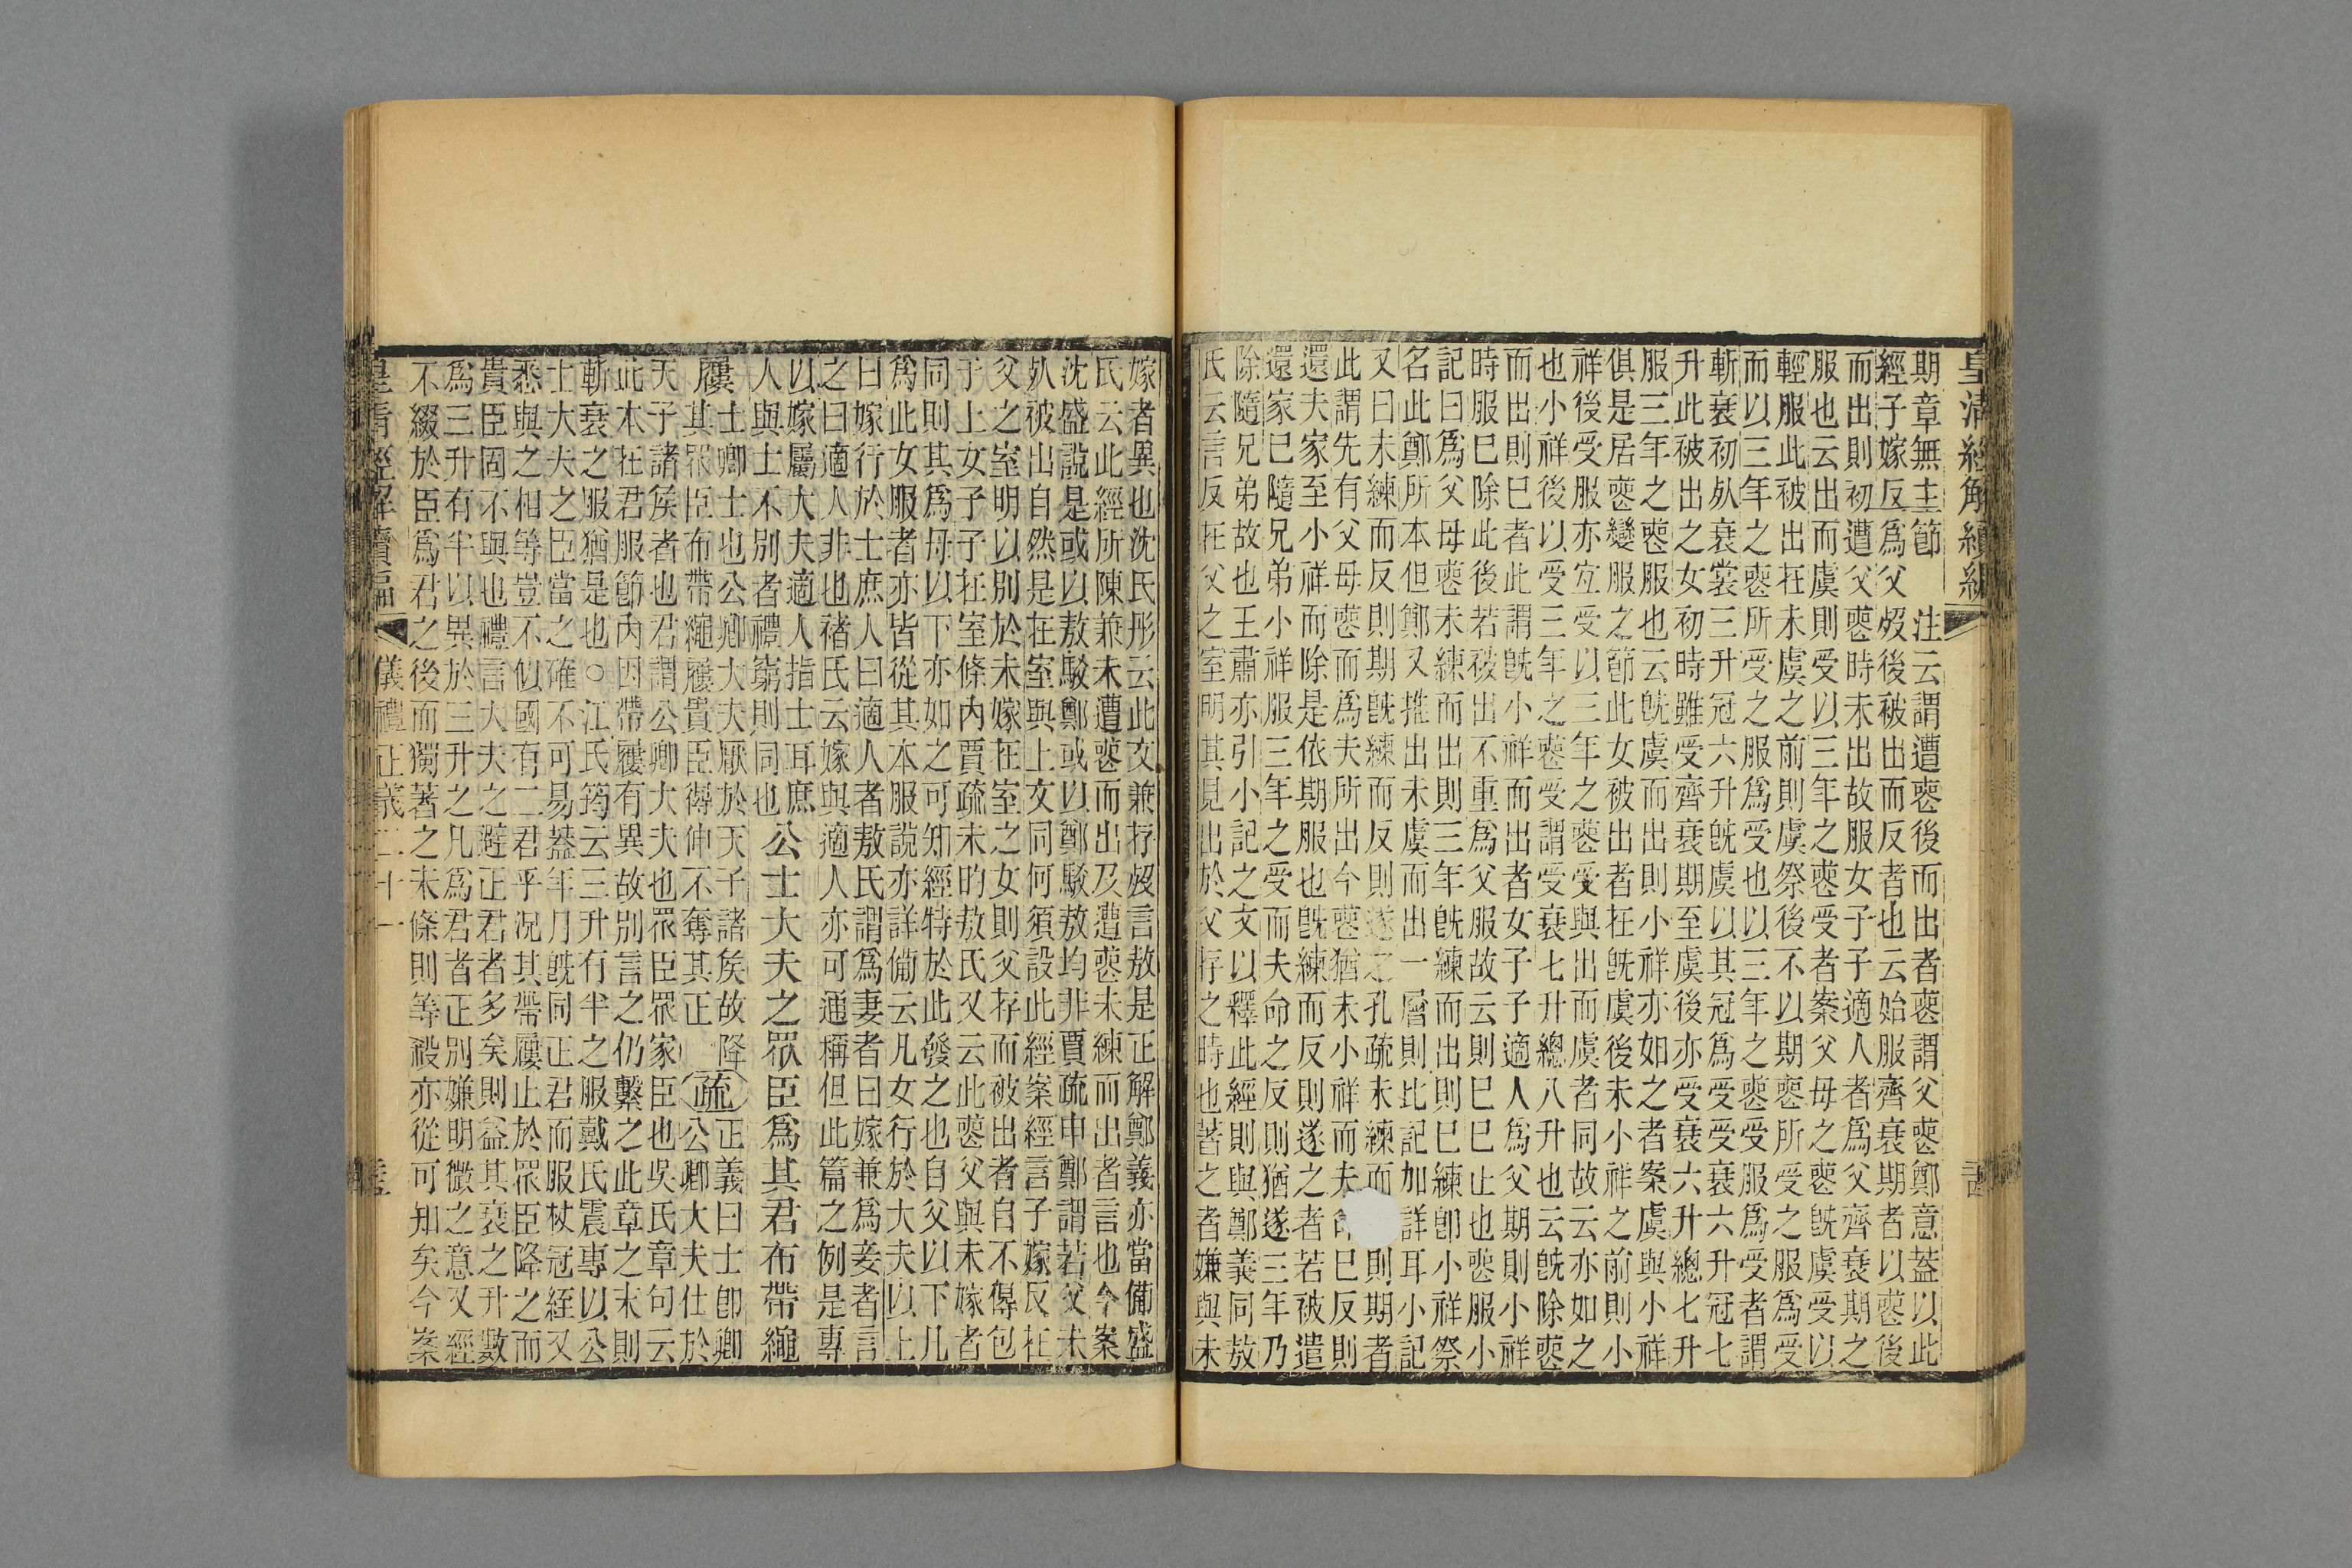 皇清經解續編
期章無主節注云謂遭喪後而出者喪謂父喪鄭意蓋以此
經子嫁反爲父歿後被出而反者也云始服齊衰期者以喪後
而出則初遭父喪時未出故服女子子適人者爲父齊衰期之
服也云出而虞則受以三年之喪受者案父母之喪既虞受以
輕服此被出在未虞之前則虞祭後不以期喪所受之服爲受
而以三年之喪所受之服爲受也以三年之喪受服爲受者謂
斬衰初死衰裳三升冠六升既虞以其冠爲受受衰六升冠七
升此被出之女初時雖受齊衰期至虞後亦受衰六升總七升
服三年之喪服也云既虞而出則小祥亦如之者案虞與小祥
俱是居喪變服之節此女被出者在既虞後未小祥之前則小
祥後受服亦宜受以三年之喪受與出而虞者同故云亦如之
也小祥後以受三年之喪受謂受衰七升總八升也云既除喪
而出則已者此謂既小祥而出者女子子適人爲父期則小祥
時服已除此後若被出不重爲父服故云則已已止也喪服小
記曰爲父母喪未練而出則三年既練而出則已練即小祥祭
名此鄭所本但鄭又推出未虞而出一層則比記加詳耳小記
又曰未練而反則期既練而反則遂之孔疏未練而則期者
此謂先有父母喪而爲夫所出今喪猶未小祥而夫命已反則
還夫家至小祥而除是依期服也既練而反則遂之者若被遣
還家已隨兄弟小祥服三年之受而夫命之反則猶遂三年乃
除隨兄弟故也王肅亦引小記之文以釋此經則與鄭義同敖
氏云言反在父之室明其見出於父存之時也著之者嫌與未
嫁者異也沈氏彤云此文兼存歿言敖是正解鄭義亦當備盛
氏云此經所陳兼未遭喪而出及遭喪未練而出者言也今案
沈盛說是或以敖駮鄭或以鄭駮敖均非賈疏申鄭謂若父未
死被出自然是在室與上文同何須設此經案經言子嫁反在
父之室明以別於未嫁在室之女則父存而被出者自不得包
于上女子子在室條內賈疏未的敖氏又云此喪父與未嫁者
同則其爲母以下亦如之可知經特於此發之也自父以下凡
爲此女服者亦皆從其本服說亦詳備云凡女行於大夫以上
曰嫁行於士庶人曰適人者敖氏謂爲妻者曰嫁兼爲妾者言
之曰適人非也褚氏云嫁與適人亦可通稱但此篇之例是專
以嫁屬大夫適人指士耳庶
人與士不別者禮窮則同也
公士大夫之眾臣爲其君布帶繩
屨
士卿士也公卿大夫厭於天子諸矦故降
其眾臣布帶繩屨貴臣得伸不奪其正
疏
正義曰士即卿
公卿大夫仕於
天子諸矦者也君謂公卿大夫也眾臣眾家臣也吳氏章句云
此本在君服節內因帶屨有異故別言之仍繫之此章之末則
斬衰之服猶是也○江氏筠云三升有半之服戴氏震專以公
士大夫之臣當之確不可易蓋年月既同正君而服杖冠絰又
悉與之相等豈不似國有二君乎況其帶屨止於眾臣降之而
貴臣固不與也禮言大夫之避正君者多矣則益其衰之升數
爲三升有半以異於三升之凡爲君者正別嫌明微之意又經
不綴於臣爲君之後而獨著之末條則等殺亦從可知矣今案
皇清經解續編 儀禮正義二十一